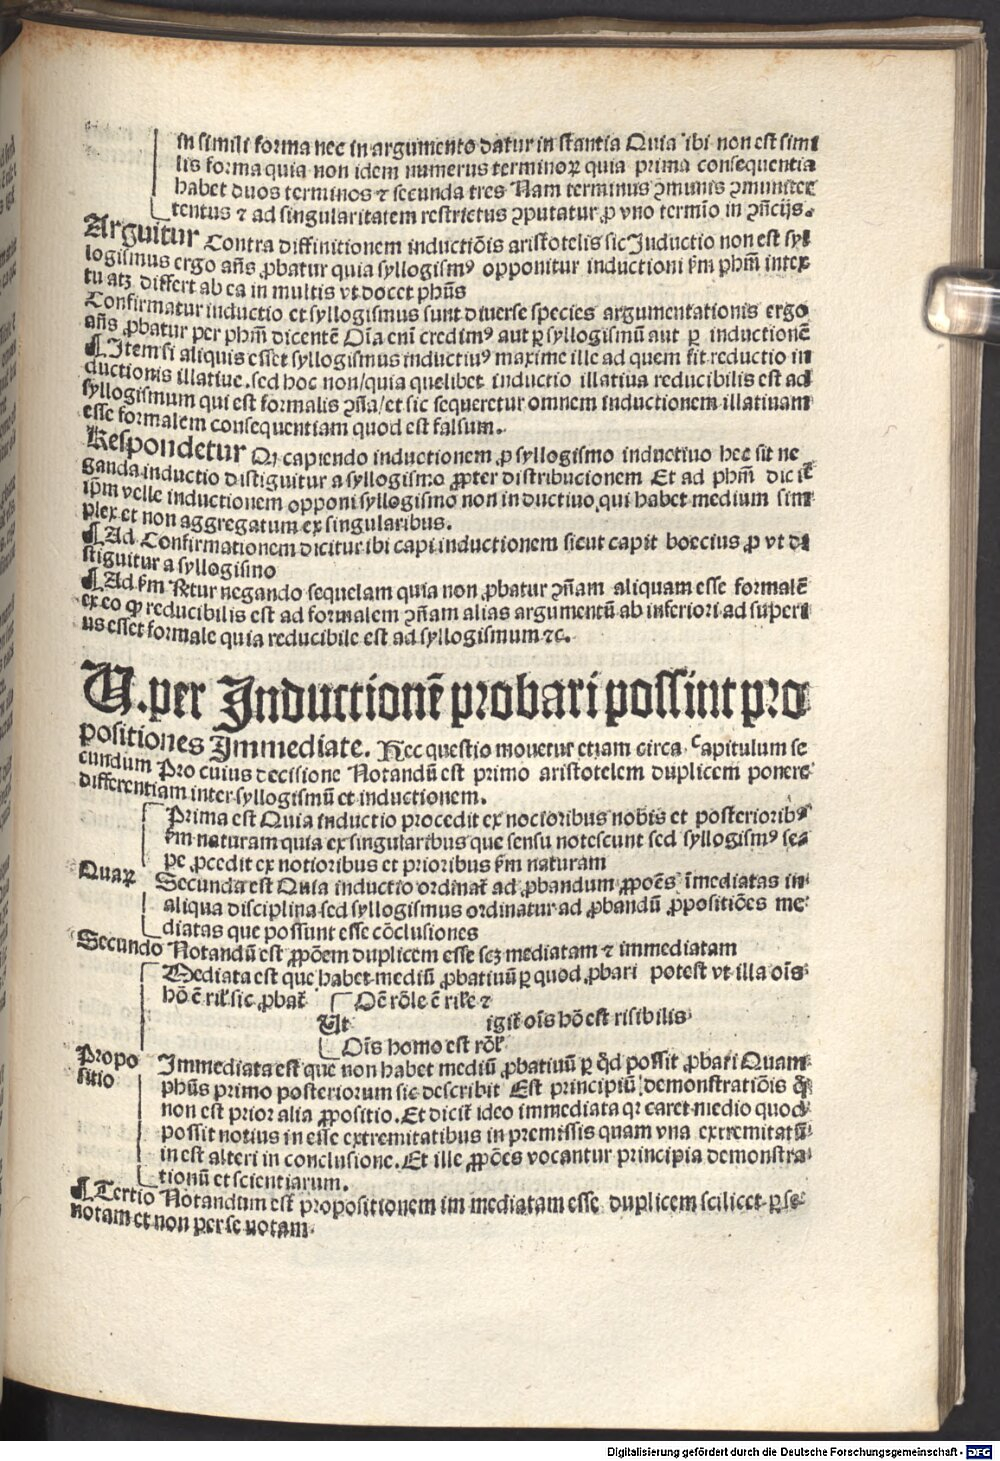 in simili forma nec in argumento datur in stantia Quia ibi non est simi
lis forma quia non idem numerus terminoꝝ quia prima consequentia
habet duos terminos ⁊ secunda tres Nam terminus ꝯmunis ꝯmuniter
tentus ⁊ ad singularitatem restrictus ꝯputatur ꝓ vno termīo in ꝯn̄cijs.
Arguitur Contra diffinitionem inductiōis aristotelis sic Inductio non est syl
logismus ergo an̄s ꝓbatur quia syllogismꝰ opponitur inductioni ẜm pħm in tex
tu atqꝫ differt ab ea in multis vt docet pħus
Confirmatur inductio et syllogismus sunt diuerse species argumentationis ergo
an̄s ꝓbatur per pħm dicentē Oīa eni credimꝰ aut ꝑ syllogismū aut ꝑ inductionē
¶ Item si aliquis esset syllogismus inductiuꝰ maxime ille ad quem fit reductio in
ductionis illatiue. sed hoc non/quia quelibet inductio illatiua reducibilis est ad
syllogismum qui est formalis ꝯn̄a/et sic sequeretur omnem inductionem illatiuam
esse formalem consequentiam quod est falsum.
Respondetur Qꝫ capiendo inductionem ꝓ syllogismo inductiuo hec sit ne
ganda inductio distiguitur a syllogismo ꝓpter distribucionem Et ad pħm dicit̄
ip̄m velle inductionem opponi syllogismo non in ductiuo qui habet medium sim
plex et non aggregatum ex singularibus.
¶ Ad Confirmationem dicitur ibi capi inductionem sicut capit boecius ꝓ vt di
stiguitur a syllogismo
¶ Ad ẜm Rn̄tur negando sequelam quia non ꝓbatur ꝯn̄am aliquam esse formalē
ex eo ꝙ reducibilis est ad formalem ꝯn̄am alias argumentū ab inferiori ad superi
us esset formale quia reducibile est ad syllogismum ⁊c.
U. per Inductionē probari possint pro
positiones Immediate. Hec questio mouetur etiam circa Capitulum se
cundum Pro cuius decisione Notandū est primo aristotelem duplicem ponere
differentiam inter syllogismū et inductionem.
Prima est Quia inductio procedit ex nocioribus nobis et posterioribꝰ
ẜm naturam quia ex singularibus que sensu notescunt sed syllogismꝰ se
pe ꝓcedit ex notioribus et prioribus ẜm naturam
Quaꝝ
Secunda est Quia inductio ordinat̄ ad ꝓbandum ꝓpoēs īmediatas in
aliqua disciplina sed syllogismus ordinatur ad ꝓbandū ꝓpositiōes me
diatas que possunt esse cōclusiones
Secundo Notandū est ꝓpōem duplicem esse scꝫ mediatam ⁊ immediatam
Mediata est que habet mediū ꝓbatiuū ꝑ quod ꝓbari potest vt illa oīs
hō ē ril̄ sic ꝓbat̄
Oē rōle ē rile ⁊
Ut
igit̄ oīs hō est risibilis
Oīs homo est rōl̄
Propo
sitio
Immediata est que non habet mediū ꝓbatiuū ꝑ qd̄ possit ꝓbari Quam
pħus primo posteriorum sic describit Est principiū demonstratiōis q̄
non est prior alia ꝓpositio. Et dicit̄ ideo immediata qꝛ caret medio quod
possit notius in esse extremitatibus in premissis quam vna extremitatū
in est alteri in conclusione. Et ille ꝓpōes vocantur principia demonstra
tionū et scientiarum.
¶ Tertio Notandum est propositionem im mediatam esse duplicem scilicet ꝑ se
notam et non per se notam.
Digitalisierung gefördert durch die Deutsche Forschungsgemeinschaft - DFG